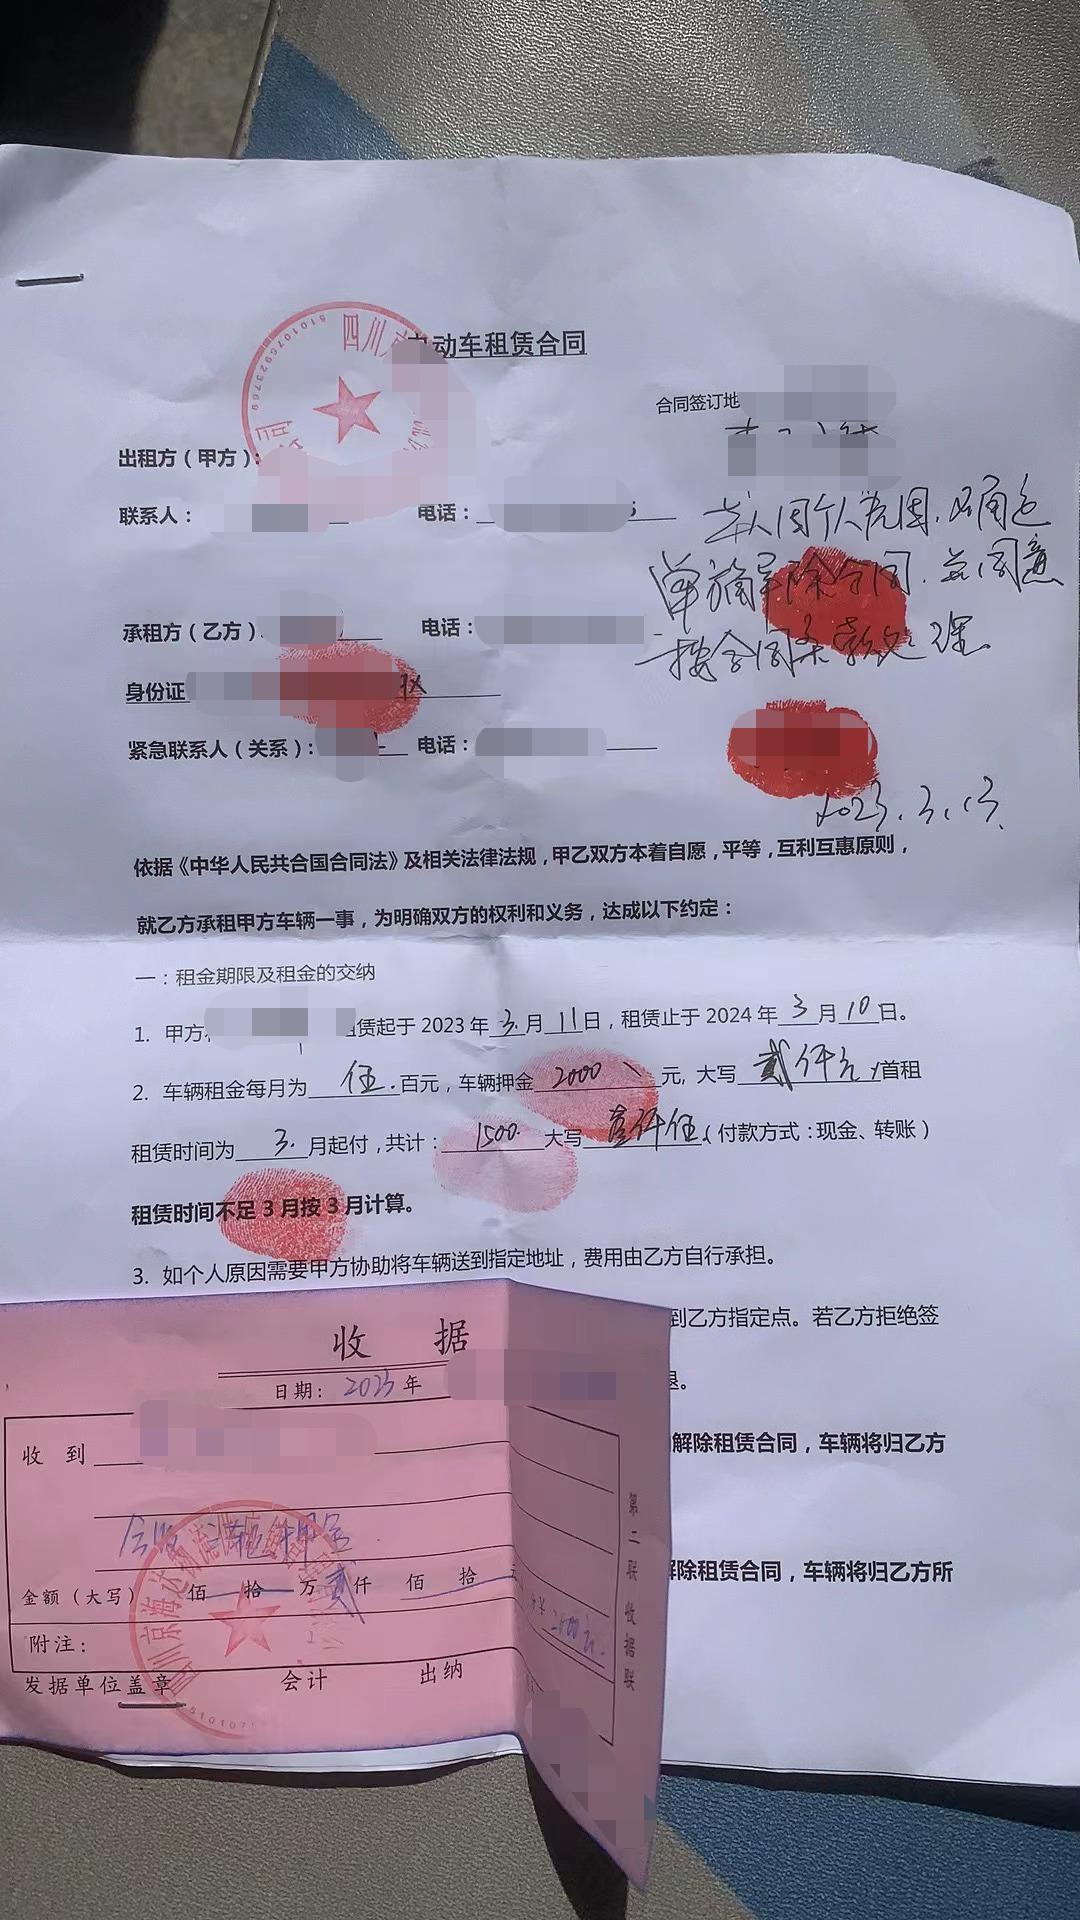 四川
动车租赁合同
合同签订地
出租方（甲方）：
联系人： 电话：
本人因个人原因，只角色
单方解除合同，并同意
一按合同条款处理
承租方（乙方） 电话：
身份证
紧急联系人（关系）： 电话：
2023.3.13
依据《中华人民共合国合同法》及相关法律法规，甲乙双方本着自愿，平等，互利互惠原则，
就乙方承租甲方车辆一事，为明确双方的权利和义务，达成以下约定：
一：租金期限及租金的交纳
1. 甲方 赁起于 2023 年 3 月 11 日，租赁止于 2024 年 3 月 10 日。
2. 车辆租金每月为 伍 百元，车辆押金 2000 元, 大写 贰仟元 /首租
租赁时间为 3 月起付，共计： 1500 大写 壹仟伍 （付款方式：现金、转账）
租赁时间不足 3 月按 3 月计算。
3. 如个人原因需要甲方协助将车辆送到指定地址，费用由乙方自行承担。
到乙方指定点。若乙方拒绝签
退。
解除租赁合同，车辆将归乙方
解除租赁合同，车辆将归乙方所
收 据
日期： 2023 年
收 到
押金
金额（大写） 佰 拾 万 贰 仟 佰 拾 元
附注：
发据单位盖章 会计 出纳
第二联收据联
四川京海达物流